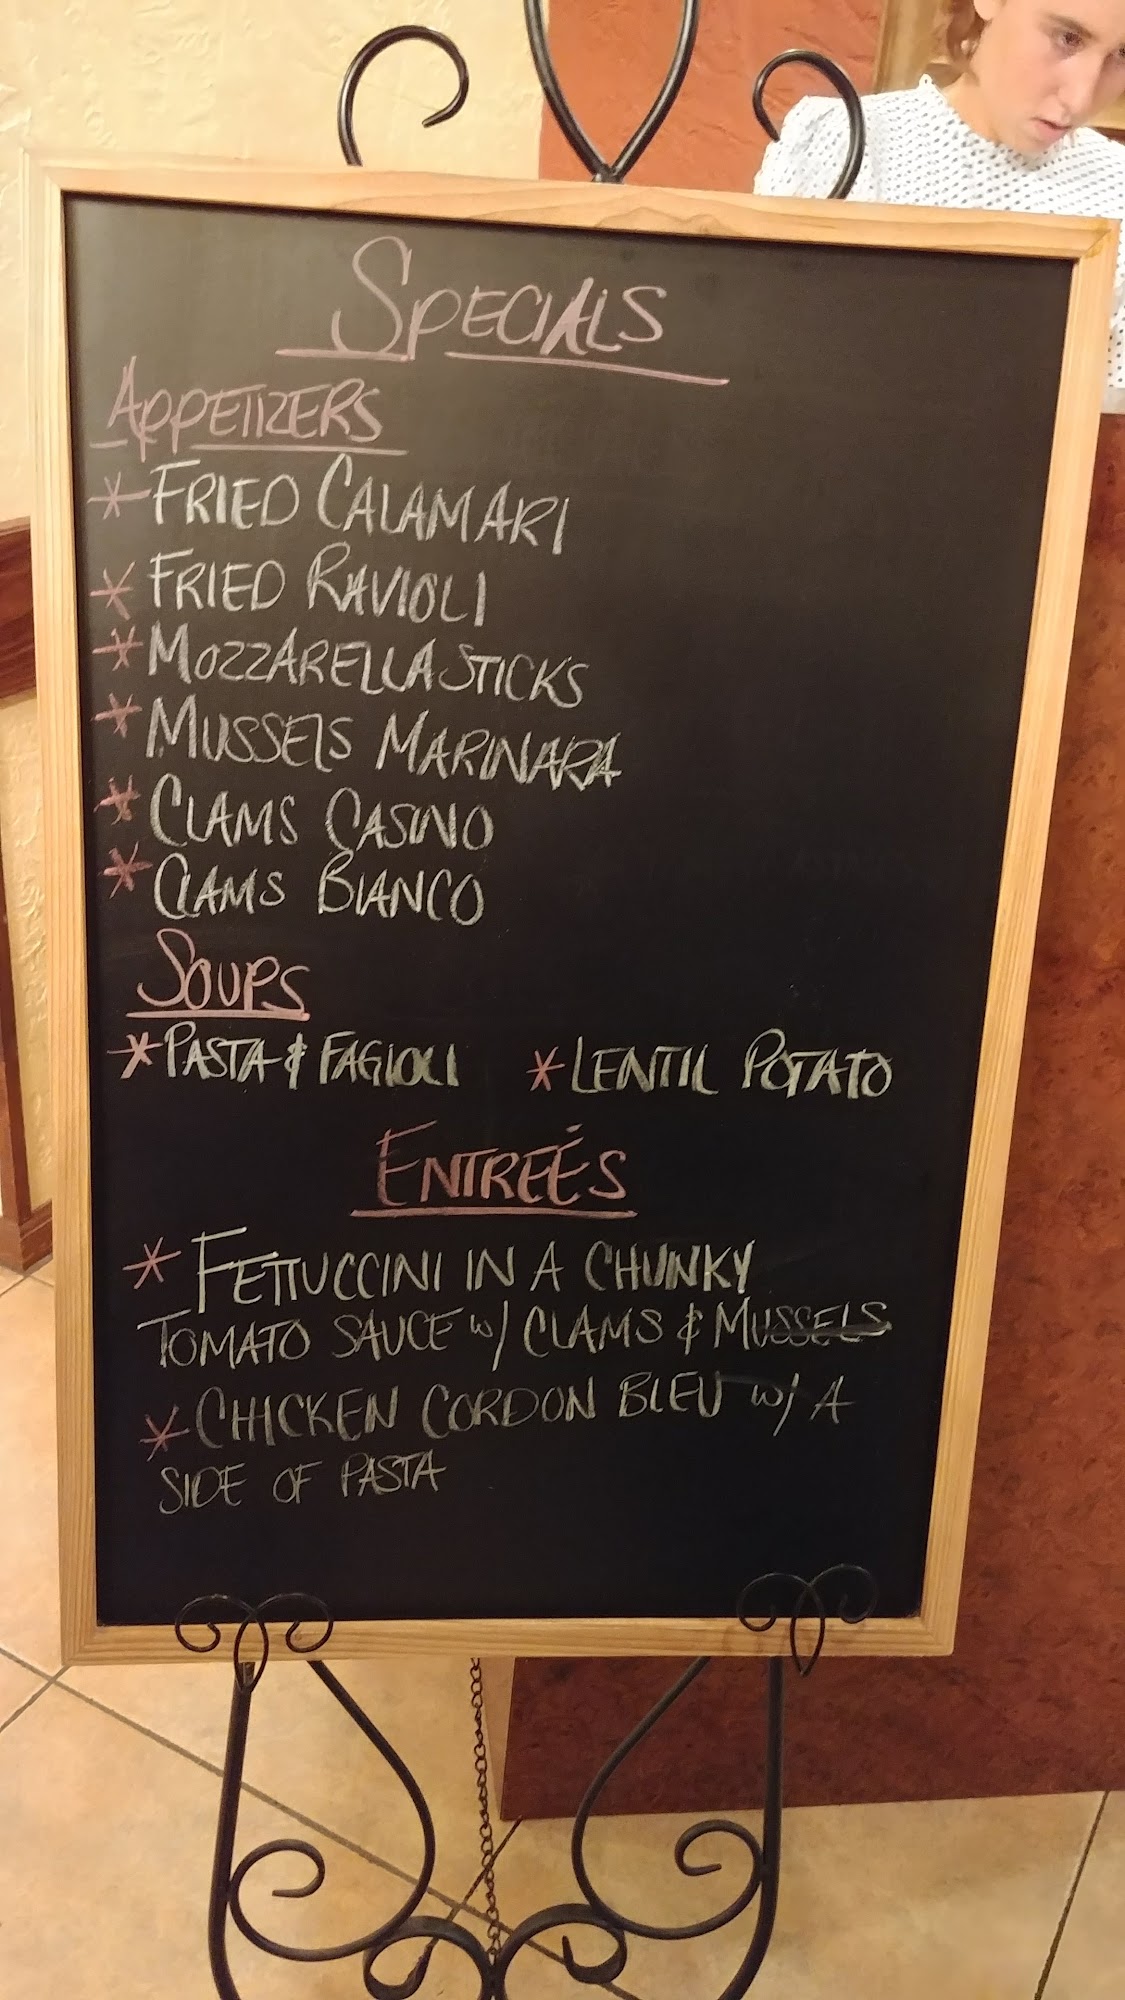 SPECIALS
APPETIZERS
* FRIED CALAMARI
* FRIED RAVIOLI
* MOZZARELLA STICKS
* MUSSELS MARINARA
* CLAMS CASINO
* CLAMS BIANCO
SOUPS
* PASTA & FAGIOLI * LENTIL POTATO
ENTREÉS
* FETTUCCINI IN A CHUNKY
TOMATO SAUCE w/ CLAMS & MUSSELS
* CHICKEN CORDON BLEU w/ A
SIDE OF PASTA